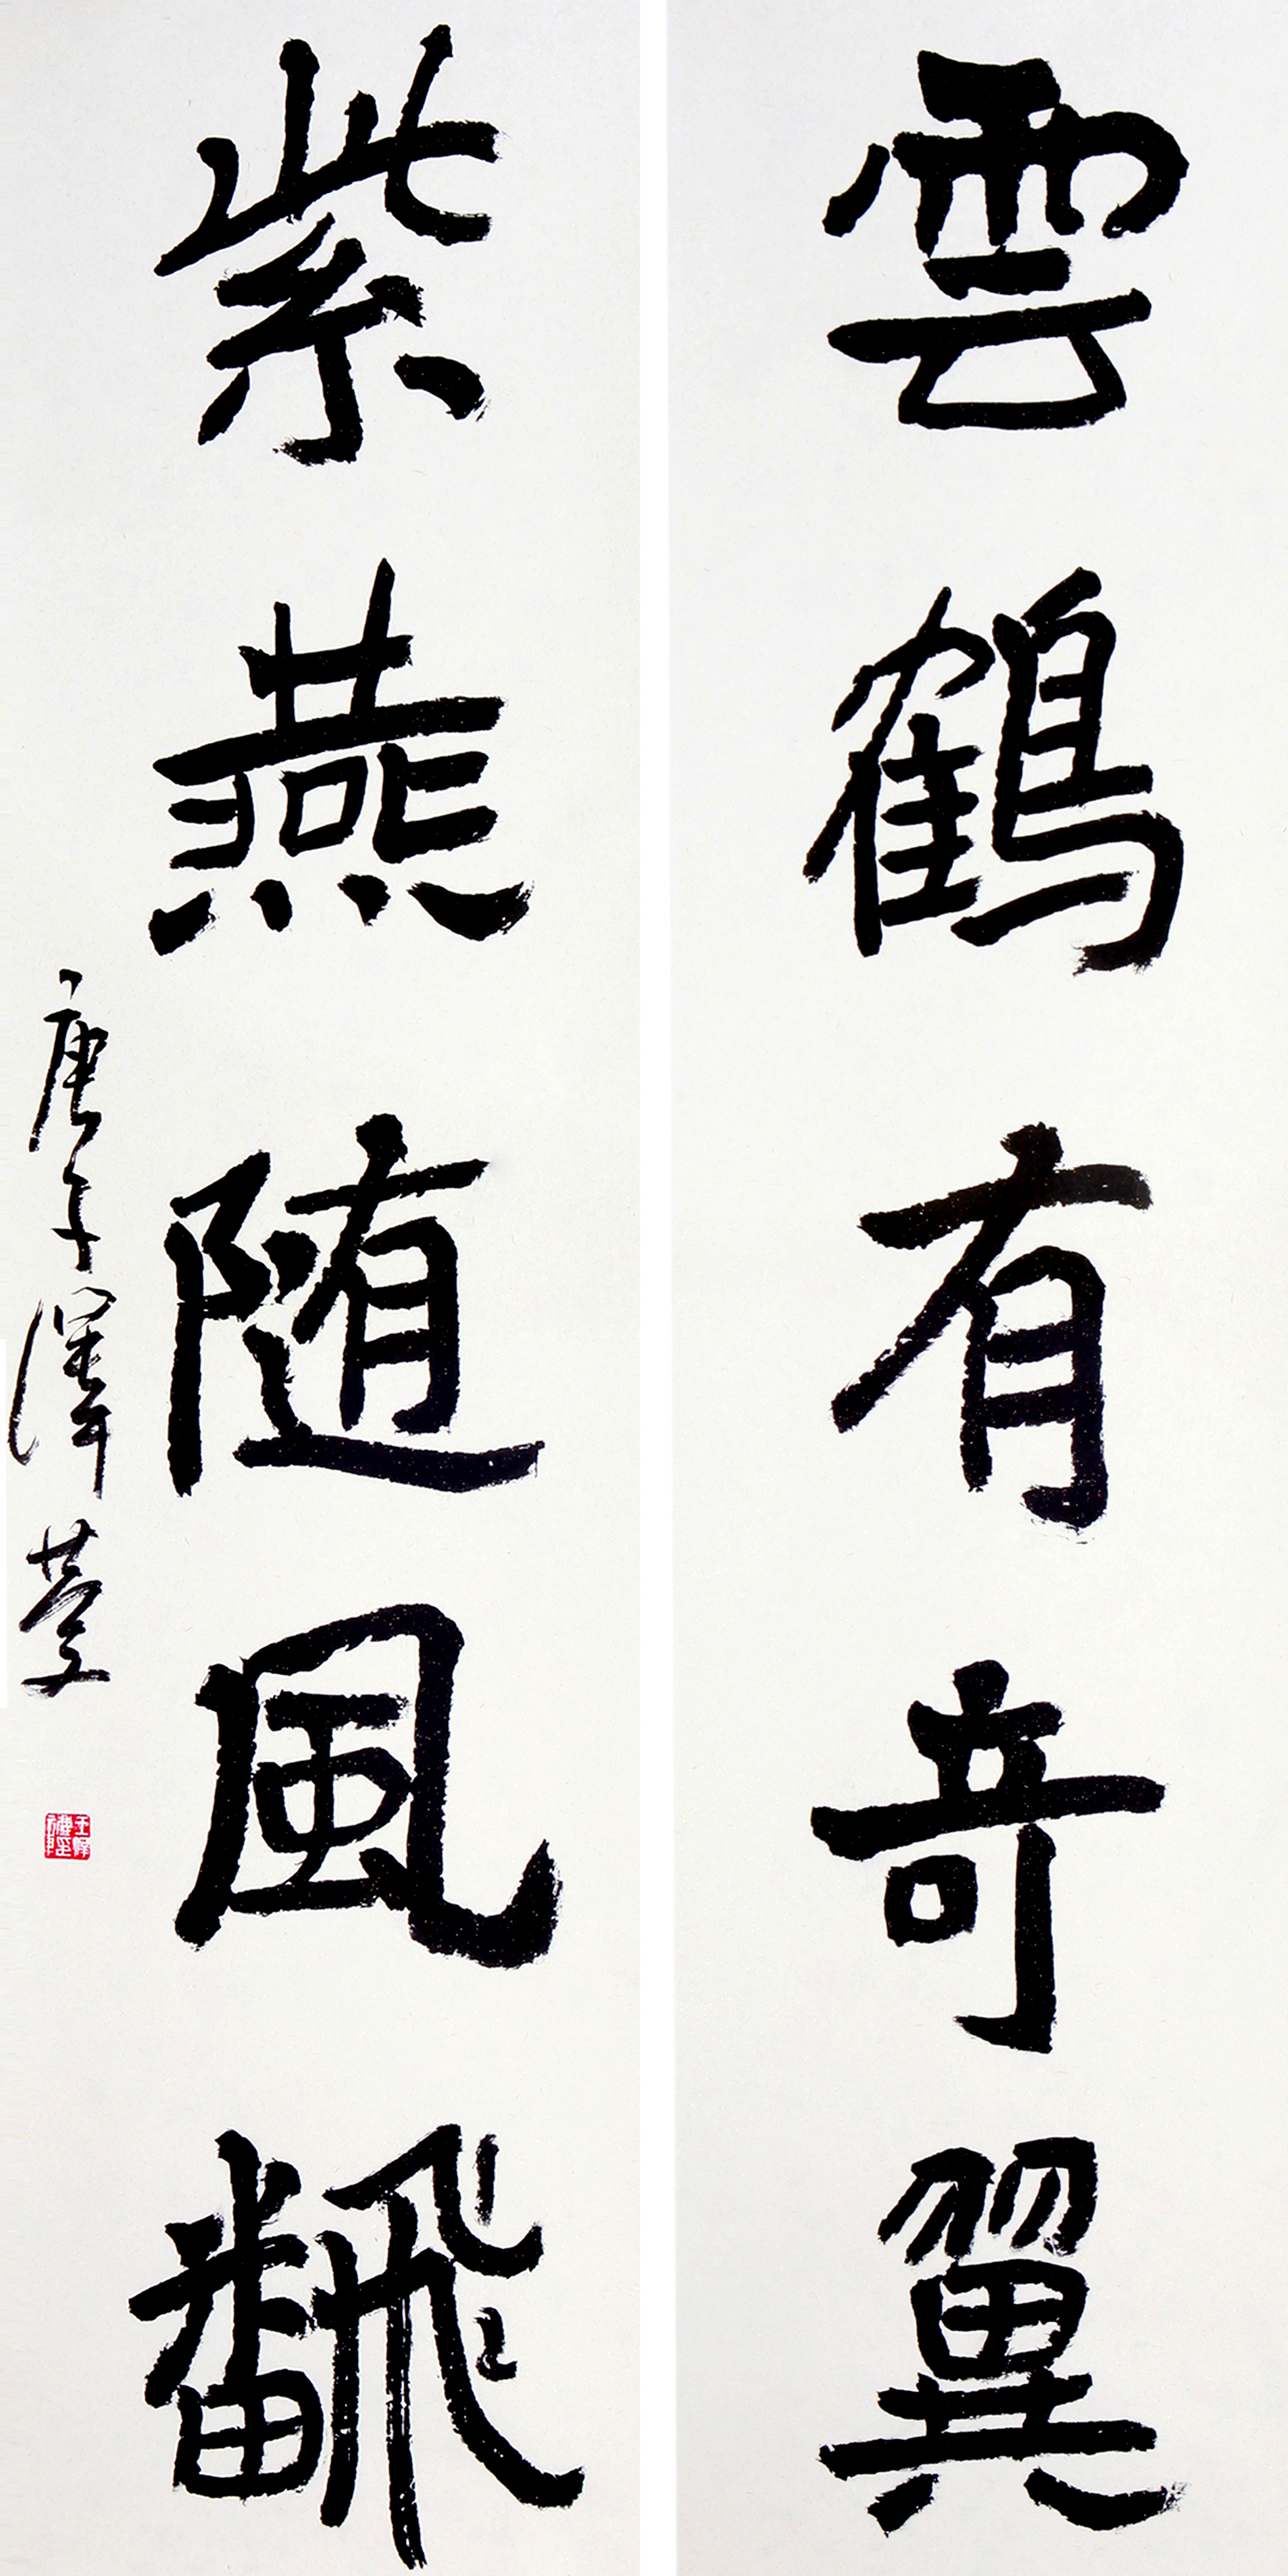 雲鶴有奇翼
紫燕随風飜
庚子澤夢